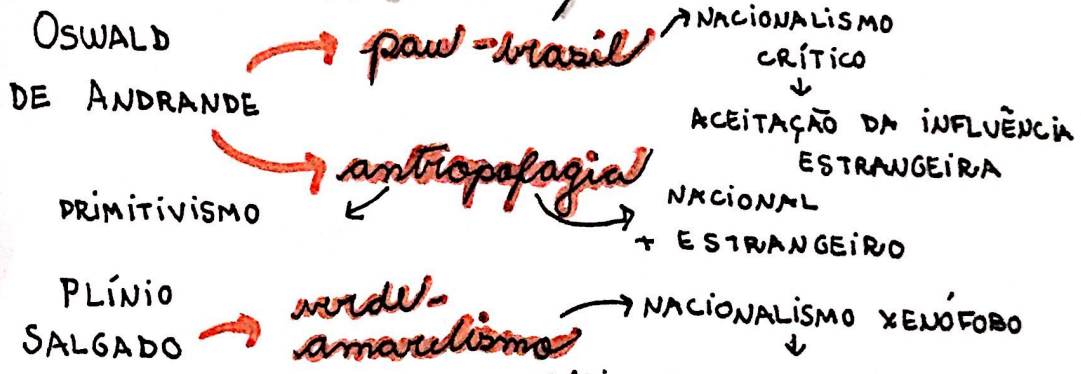 OSWALD
DE ANDRANDE
pau-brasil
NACIONALISMO
CRÍTICO
ACEITAÇÃO DA INFLUÊNCIA
ESTRANGEIRA
antropofagia
PRIMITIVISMO
NACIONAL
+ ESTRANGEIRO
PLÍNIO
SALGADO
verde-
amarelismo
NACIONALISMO XENÓFOBO